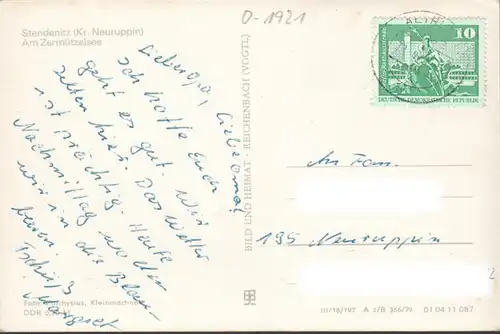 Stendenitz (Kr. Neuruppin)
Am Zermützelsee
0-1921
ALTRU
10
DEUTSCHE DEMOKRATISCHE REPUBLIK
Lieber Opa, Liebe Oma!
Ich hoffe Euch
geht es gut. Wir
zelten hier. Das Wetter
ist prächtig. Heute
Nachmittag wollen
wir in die Blau-
beeren.
Tschüß
Margret
BILD UND HEIMAT · REICHENBACH (VOGTL)
An Fam.
195 Neuruppin
Kleinmachnow
DDR
III/18/197 A 1/B 366/79 01 04 11 087